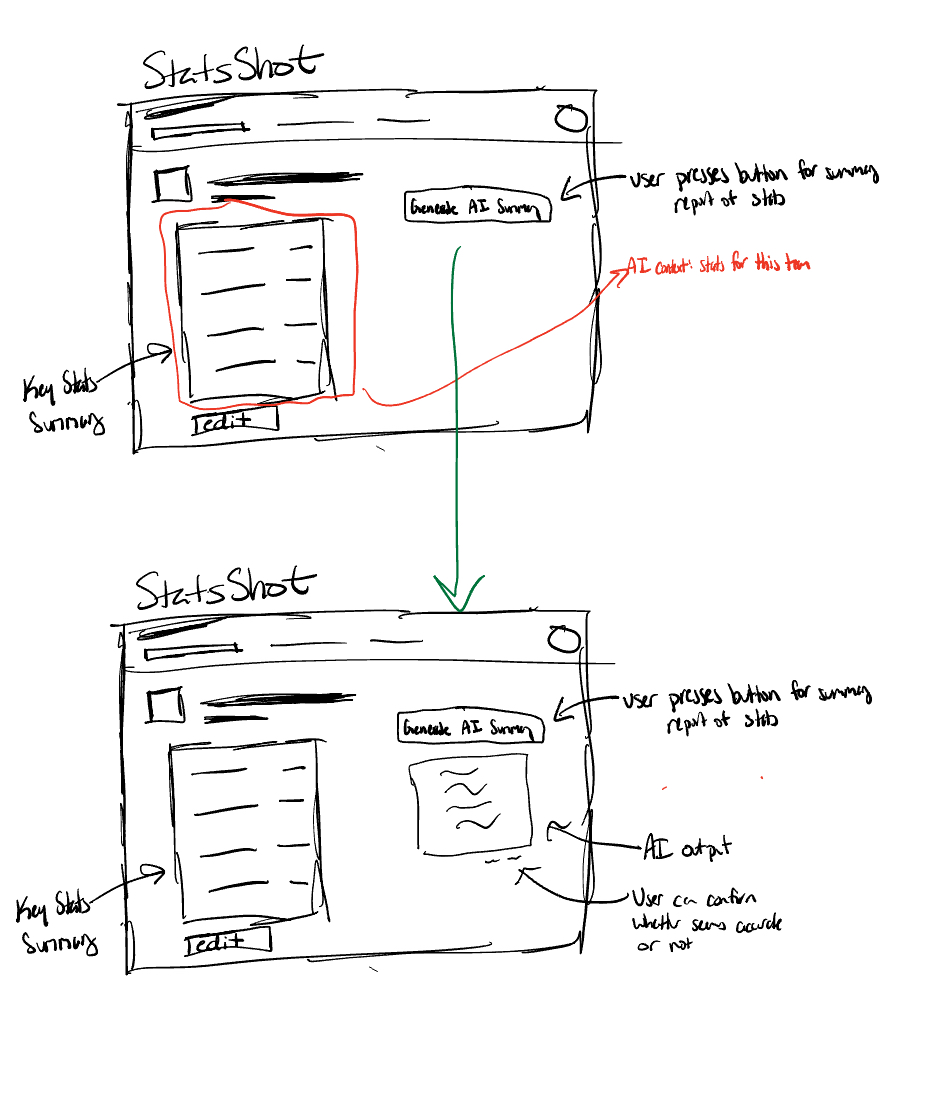 StatsShot
Generate AI Summary
User presses button for summary
report of stats
AI context: stats for this team
Key Stats
Summary
edit
StatsShot
Generate AI Summary
User presses button for summary
report of stats
AI output
Key Stats
Summary
User can confirm
whether seems accurate
or not
edit